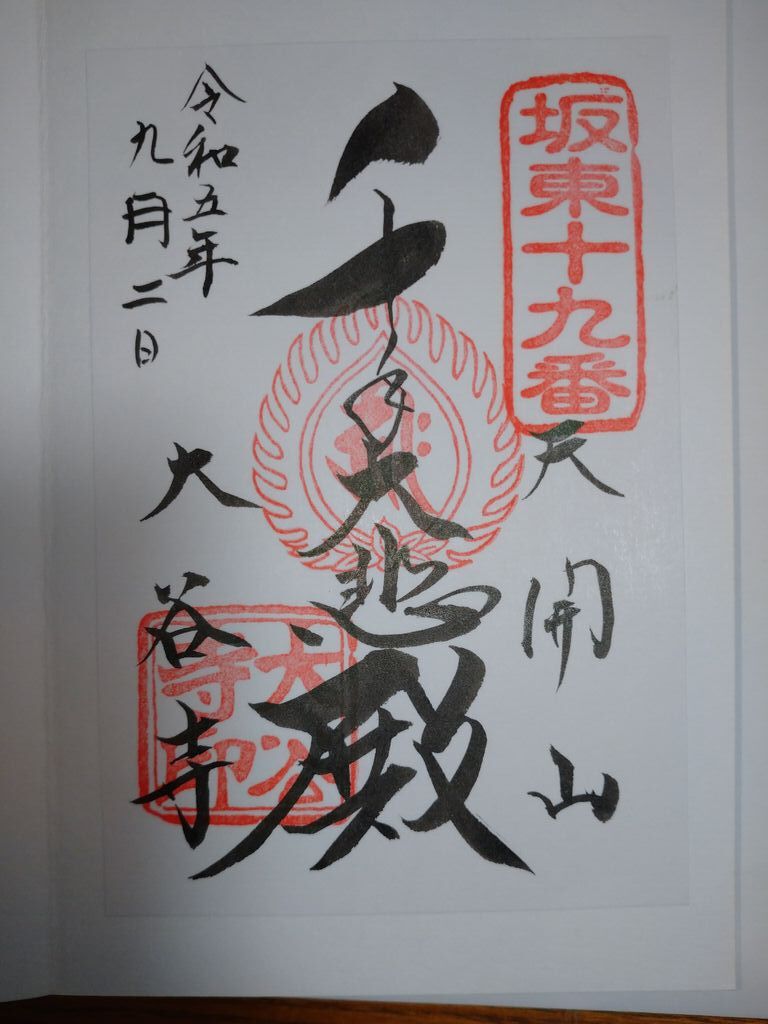 坂東十九番
天開山
千手大悲殿
令和五年
九月二日
大谷寺
大谷
寺印